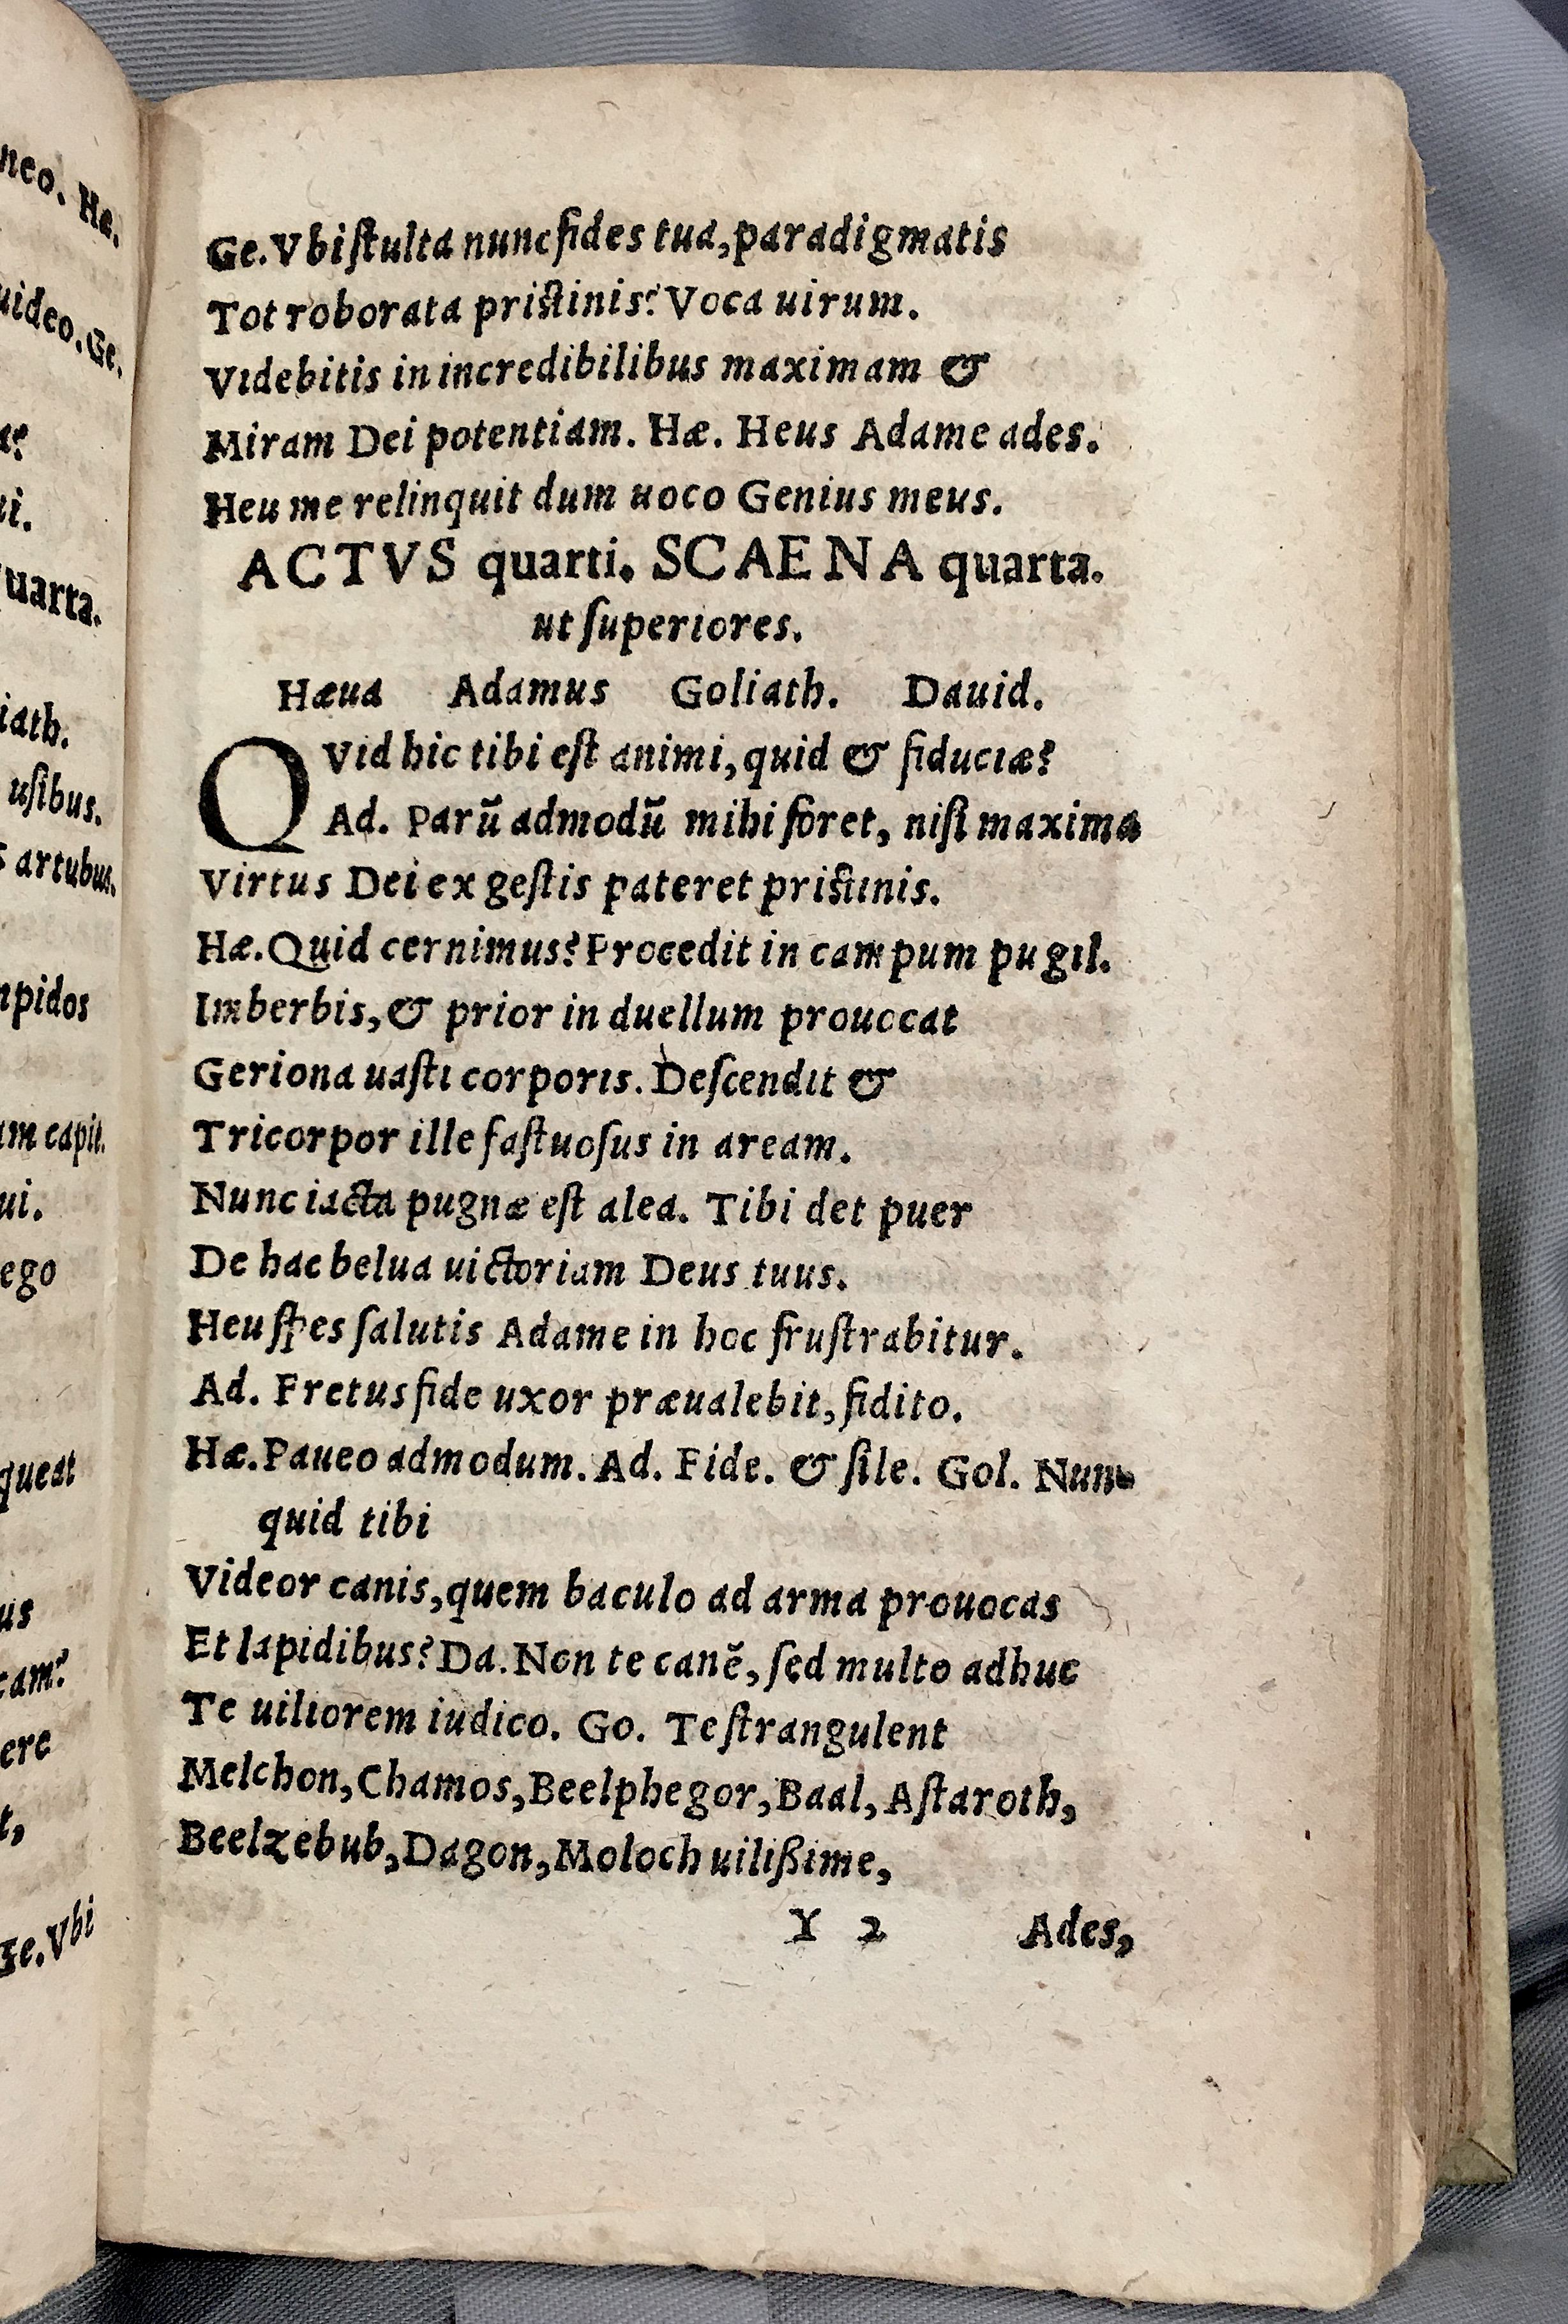 neo. Hæ.
uideo. Ge.
ui.
uarta.
iath.
usibus.
s artubus.
mpidos
um capit.
ui.
ego
queat
us
cam?
ere
t,
Ge. Vbi
Ge. Vbi ſtulta nunc fides tua, paradigmatis
Tot roborata priſtinis? Voca uirum.
Videbitis in incredibilibus maximam &
Miram Dei potentiam. Hæ. Heus Adame ades.
Heu me relinquit dum uoco Genius meus.
ACTVS quarti. SCAENA quarta.
ut ſuperiores.
Hæua Adamus Goliath. Dauid.
QVid hic tibi eſt animi, quid & fiduciæ?
Ad. Parũ admodũ mihi foret, niſi maxima
Virtus Dei ex geſtis pateret priſtinis.
Hæ. Quid cernimus? Procedit in campum pugil.
Imberbis, & prior in duellum prouocat
Geriona uaſti corporis. Deſcendit &
Tricorpor ille faſtuoſus in aream.
Nunc iacta pugnæ eſt alea. Tibi det puer
De hac belua uictoriam Deus tuus.
Heu ſpes ſalutis Adame in hoc fruſtrabitur.
Ad. Fretus fide uxor præualebit, fidito.
Hæ. Paueo admodum. Ad. Fide. & ſile. Gol. Nun-
quid tibi
Videor canis, quem baculo ad arma prouocas
Et lapidibus? Da. Non te canẽ, ſed multo adhuc
Te uiliorem iudico. Go. Te ſtrangulent
Melchon, Chamos, Beelphegor, Baal, Aſtaroth,
Beelzebub, Dagon, Moloch uilißime,
Y 2 Ades,